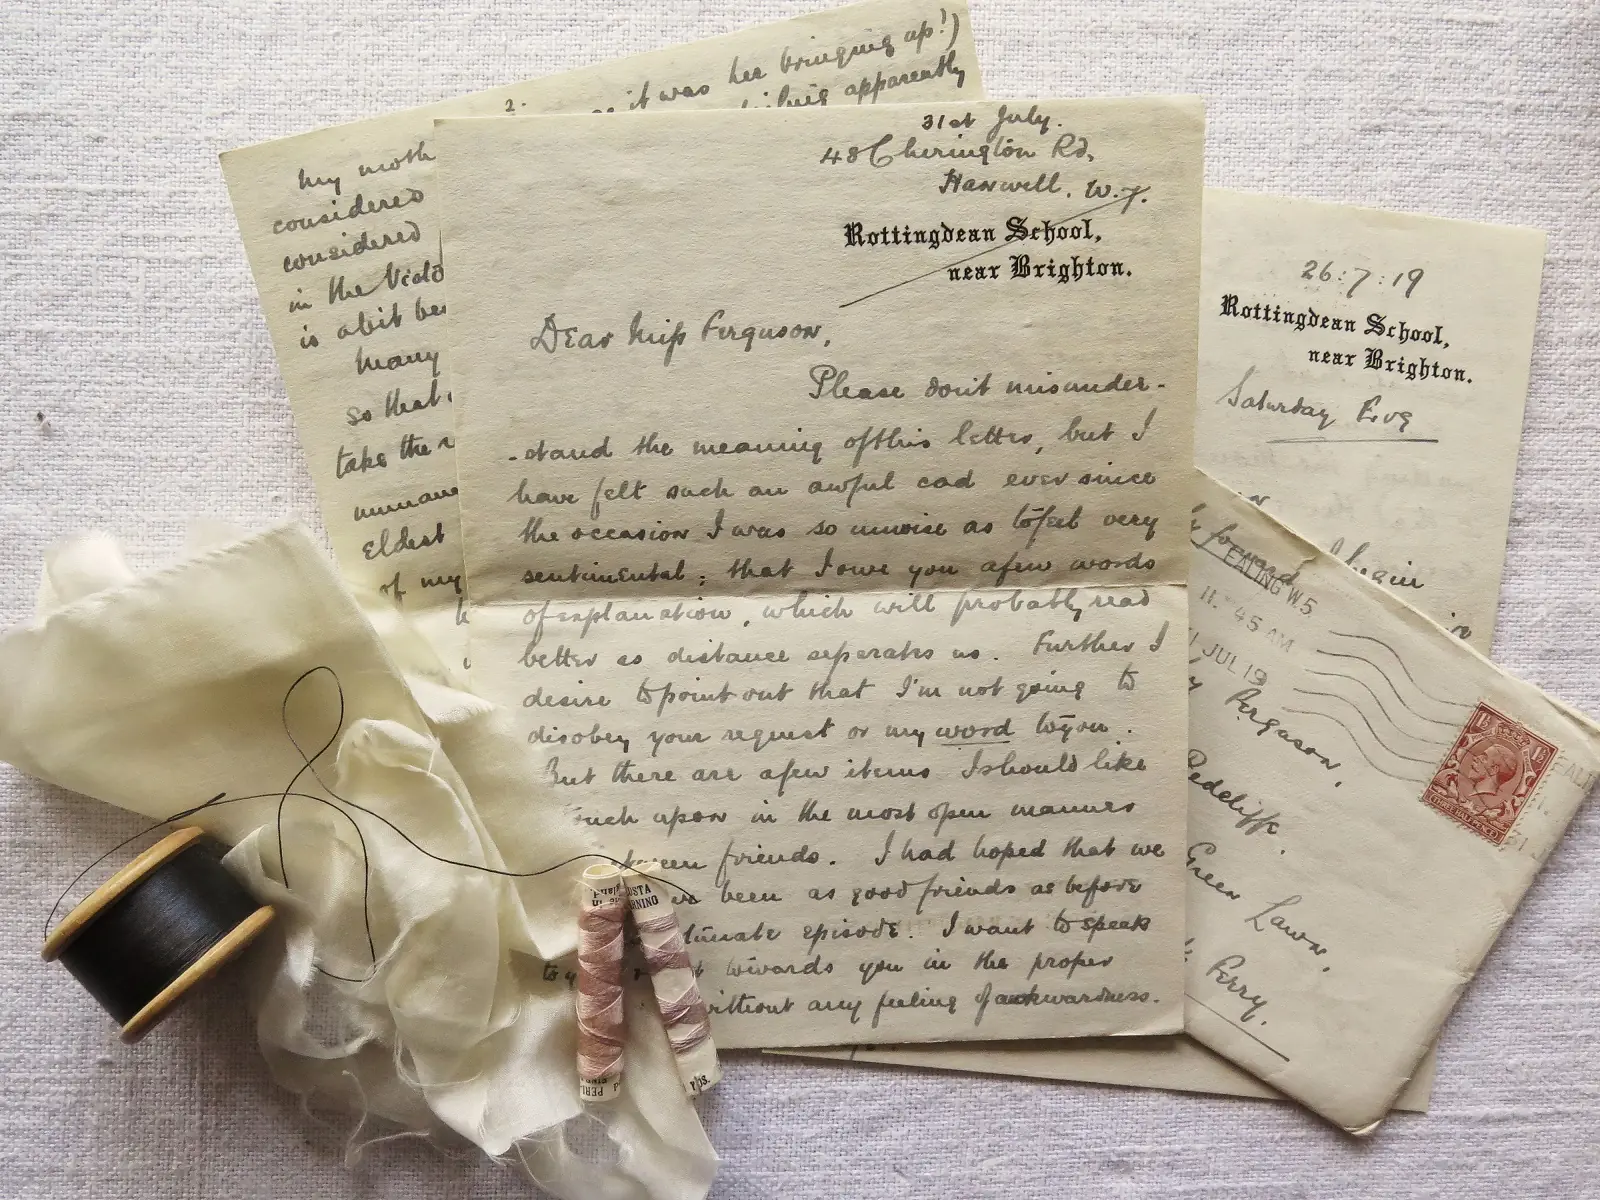 2.
as it was her bringing up!)
apparently
my moth
considered
considered
in the Victo
is a bit be
many
so that
take the
Eldest
of my
31st July.
48 Cherington Rd,
Hanwell. W.7.
Rottingdean School,
near Brighton.
Dear Miss Ferguson,
Please don't misunder-
-stand the meaning of this letter, but I
have felt such an awful cad ever since
the occasion I was so unwise as to feel very
sentimental; that I owe you a few words
of explanation, which will probably read
better as distance separates us. Further I
desire to point out that I'm not going to
disobey your request or my word to you.
But there are a few items I should like
touch upon in the most open manner
between friends. I had hoped that we
have been as good friends as before
episode. I want to speak
to y towards you in the proper
without any feeling of awkwardness.
26:7:19
Rottingdean School,
near Brighton.
Saturday Eve
again
EALING W.5
11.45 AM
31 JUL 19
Ferguson,
Redcliffe.
Green Lawn,
Ferry.
THREE HALFPENCE
COSTA
YDS.